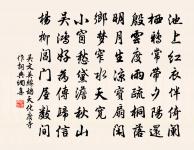 池上紅衣伴倚闌
栖鴉常帶夕陽還
殷雲度雨疏桐落
明月生涼寶扇閒
鄉夢窄水天寬
小窗愁黛淡秋山
吳鴻好為傳歸信
楊柳閶門屋數間
吳文英鷓鴣天化度寺
作